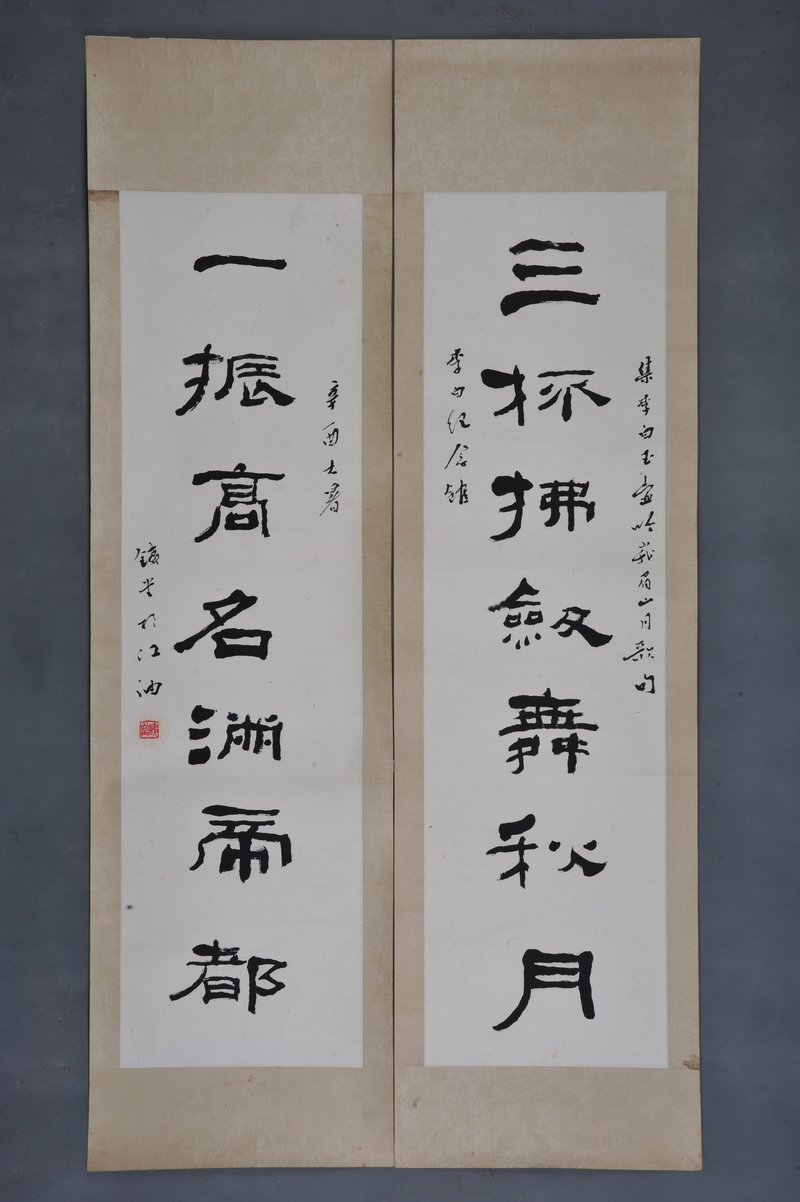 集李白玉壺吟峨眉山月歌句
三杯拂劒舞秋月
李白紀念館
辛酉大暑
一振高名滿帝都
於江油